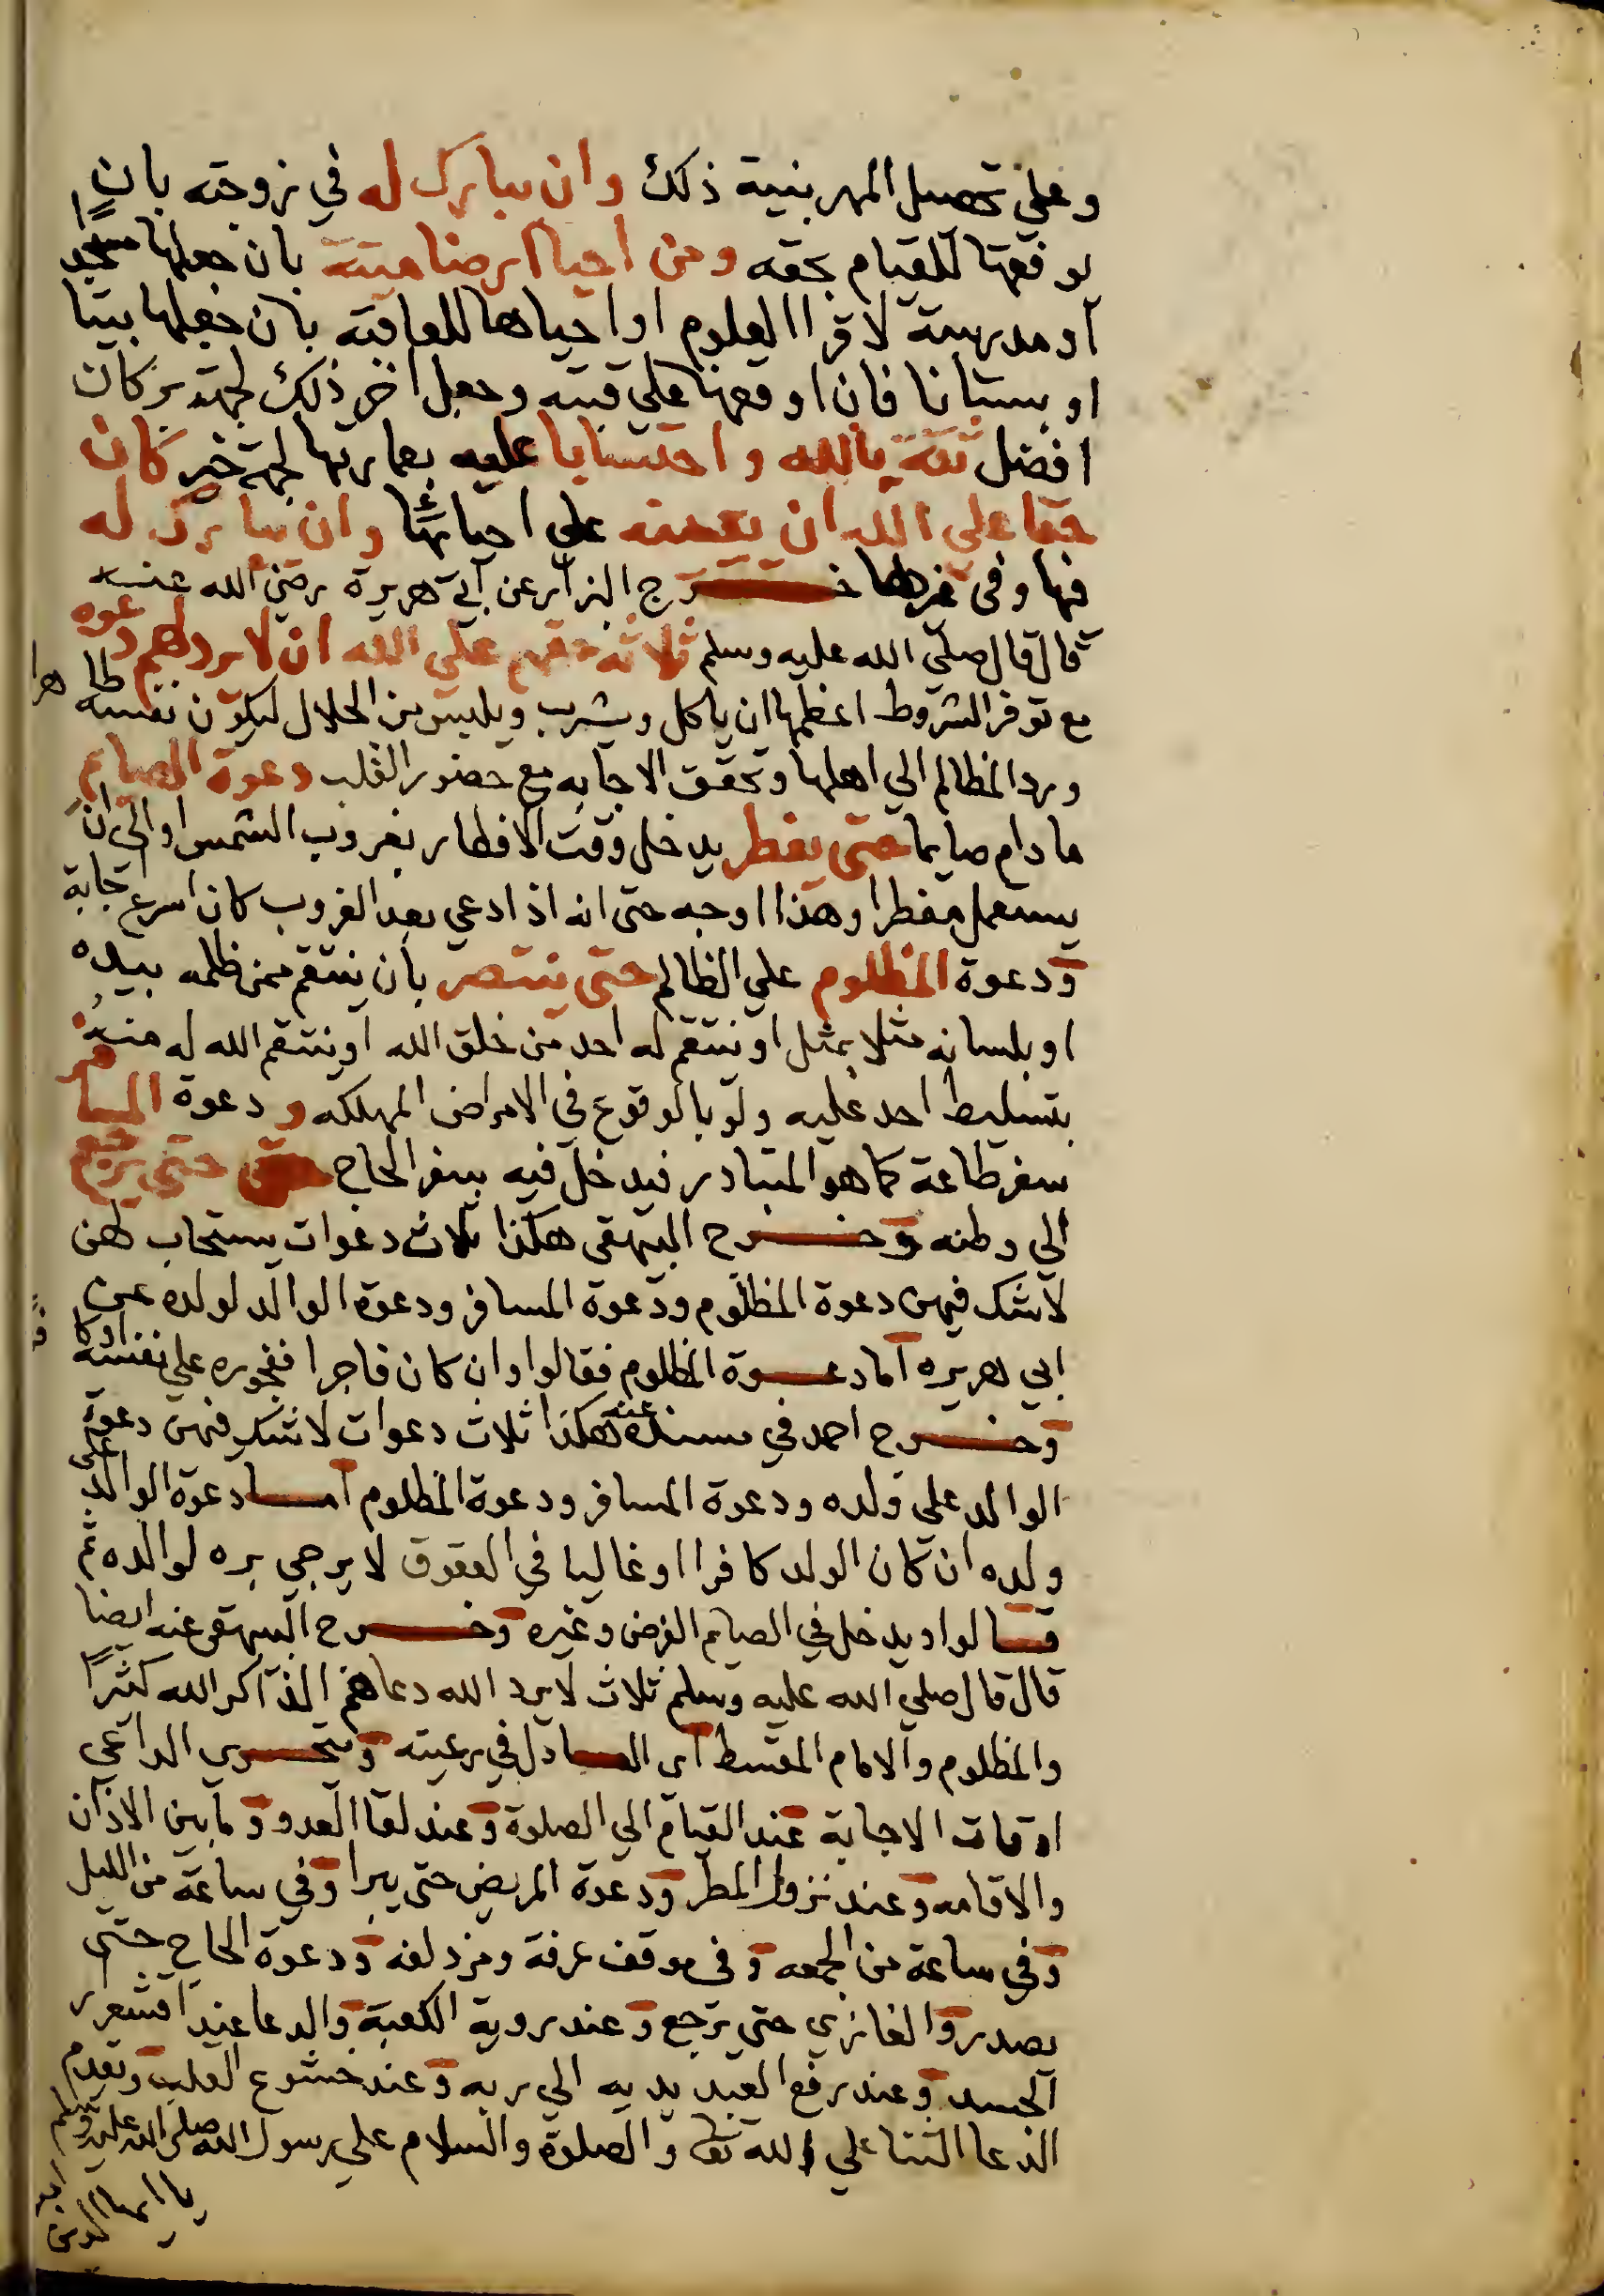 وعلي تحصيل المهر بنية ذلك وان يبارك له في زوجته بان
يوفقها للقيام بحقه ومن احيا ارضا ميتة بان جعلها مسجدًا
او مدرسة لاقرا العلوم او احياها للعاقبه بان جعلها بيتا
او بستانا فان اوقفها علي وجعل اخر ذلك لجهة بر كان
افضل ثقة بالله واحتسابا عليه بعمارتها لجهة خير كان
حقا علي الله ان يعينه علي احيائها وان يبارك له
فيها وفي غيرها خرج البزار عن ابي هريرة رضي الله عنه
قال قال صلي الله عليه وسلم ثلاثة حقهم علي الله ان لا يرد لهم دعوه
مع توفر الشروط اعظمها ان ياكل ويشرب ويلبس من الحلال ليكون نفسه طاهرا
ورد المظالم الي اهلها وتحقق الاجابه مع حضور القلب دعوة الصايم
ما دام صايما حتي يفطر يدخل وقت الافطار بغروب الشمس او الي ان
يستعمل مفطرا وهذا اوجه حتي انه اذا دعي بعد الغروب كان اسرع اجابة
ودعوة المظلوم علي الظالم حتي ينتصر بان ينتقم ممن ظلمه بيده
او بلسانه مثلا بمثل او ينتقم له احد من خلق الله او ينتقم الله له منه
بتسليط احد عليه ولو بالوقوع في الامراض المهلكه ودعوة المسافر
سفر طاعة كما هو المتبادر فيدخل فيه سفر الحاج حتي حتي يرجع
الي وطنه وخرج البيهقي هكذا ثلاث دعوات يستجاب لهن
لا شك فيهن دعوة المظلوم ودعوة المسافر ودعوة الوالد لولده عن
ابي هريره اما دعوة المظلوم فقالوا وان كان فاجرا ففجوره علي نفسه
وخرج احمد في مسنده عنه هكذا ثلاث دعوات لا شك فيهن دعوة
الوالد علي ولده ودعوة المسافر ودعوة المظلوم اما دعوة الوالد علي
ولده ان كان الولد كافرا او غاليا في العقوق لا يرجي بره لوالده ثم
قالوا ويدخل في الصايم الفرض وغيره وخرج البيهقي عنه ايضا
قال قال صلي الله عليه وسلم ثلاث لا يرد الله دعاهم الذاكر الله كثيرًا
والمظلوم والامام المقسط اي العادل في رعيته ويتحري الداعي
اوقات الاجابة عند القيام الي الصلوة وعند لقا العدو وما بين الاذان
والاقامه وعند نزول المطر ودعوة المريض حتي يبرا وفي ساعة من الليل
وفي ساعة من الجمعه وفي موقف عرفة ومزدلفه ودعوة الحاج حتي
يصدر والغازي حتي يرجع وعند روية الكعبة والدعا عند اقشعرار
الجسد وعند رفع العبد يديه الي ربه وعند خشوع القلب وتقدم
الدعا الثنا علي الله تعا والصلوة والسلام علي رسول الله صلي الله عليه وسلم
يا ايها الذين